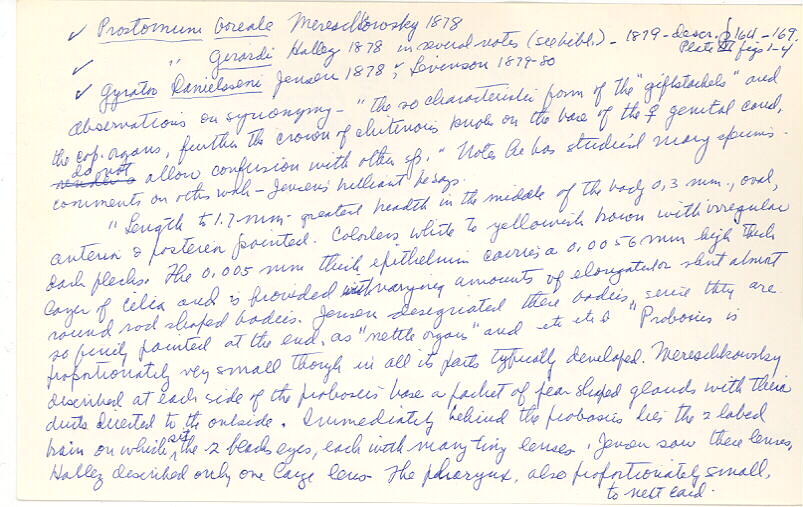 ✓ Prostomum boreale Mereschkowsky 1878
✓ " Girardi Hallez 1878 in several notes (see bibl.) - 1879 - descr. p 164-169.
Plate III figs 1-4
✓ Gyrator Danielsseni Jensen 1878; Levinson 1879-80
Observations on synonymy - "the so characteristic form of the "giftstachels" and
the cop. organs, further the crown of chitinous knobs on the base of the ♀ genital canal,
do not allow confusion with other sp." Notes he has studied many specims.
comments on others work - Jensen's brilliant he says.
"Length to 1.7 mm - greatest breadth in the middle of the body 0,3 mm., oval,
anterior & posterior pointed. Colorless white to yellowish brown with irregular
dark flecks. The 0,005 mm thick epithelium carries a 0,0056 mm high thick
layer of cilia and is provided with varying amounts of elongated or short almost
round rod shaped bodies. Jensen designated these bodies, since they are
so finely pointed at the end, as "nettle organs" and etc etc " Proboscis is
proportionately very small though in all its parts typically developed. Mereschkowsky
described at each side of the proboscis base a packet of pear shaped glands with their
ducts directed to the outside. Immediately behind the proboscis lies the 2 lobed
brain on which sit the 2 black eyes, each with many tiny lenses, Jensen saw these lenses,
Hallez described only one large lens The pharynx, also proportionately small,
to next card.